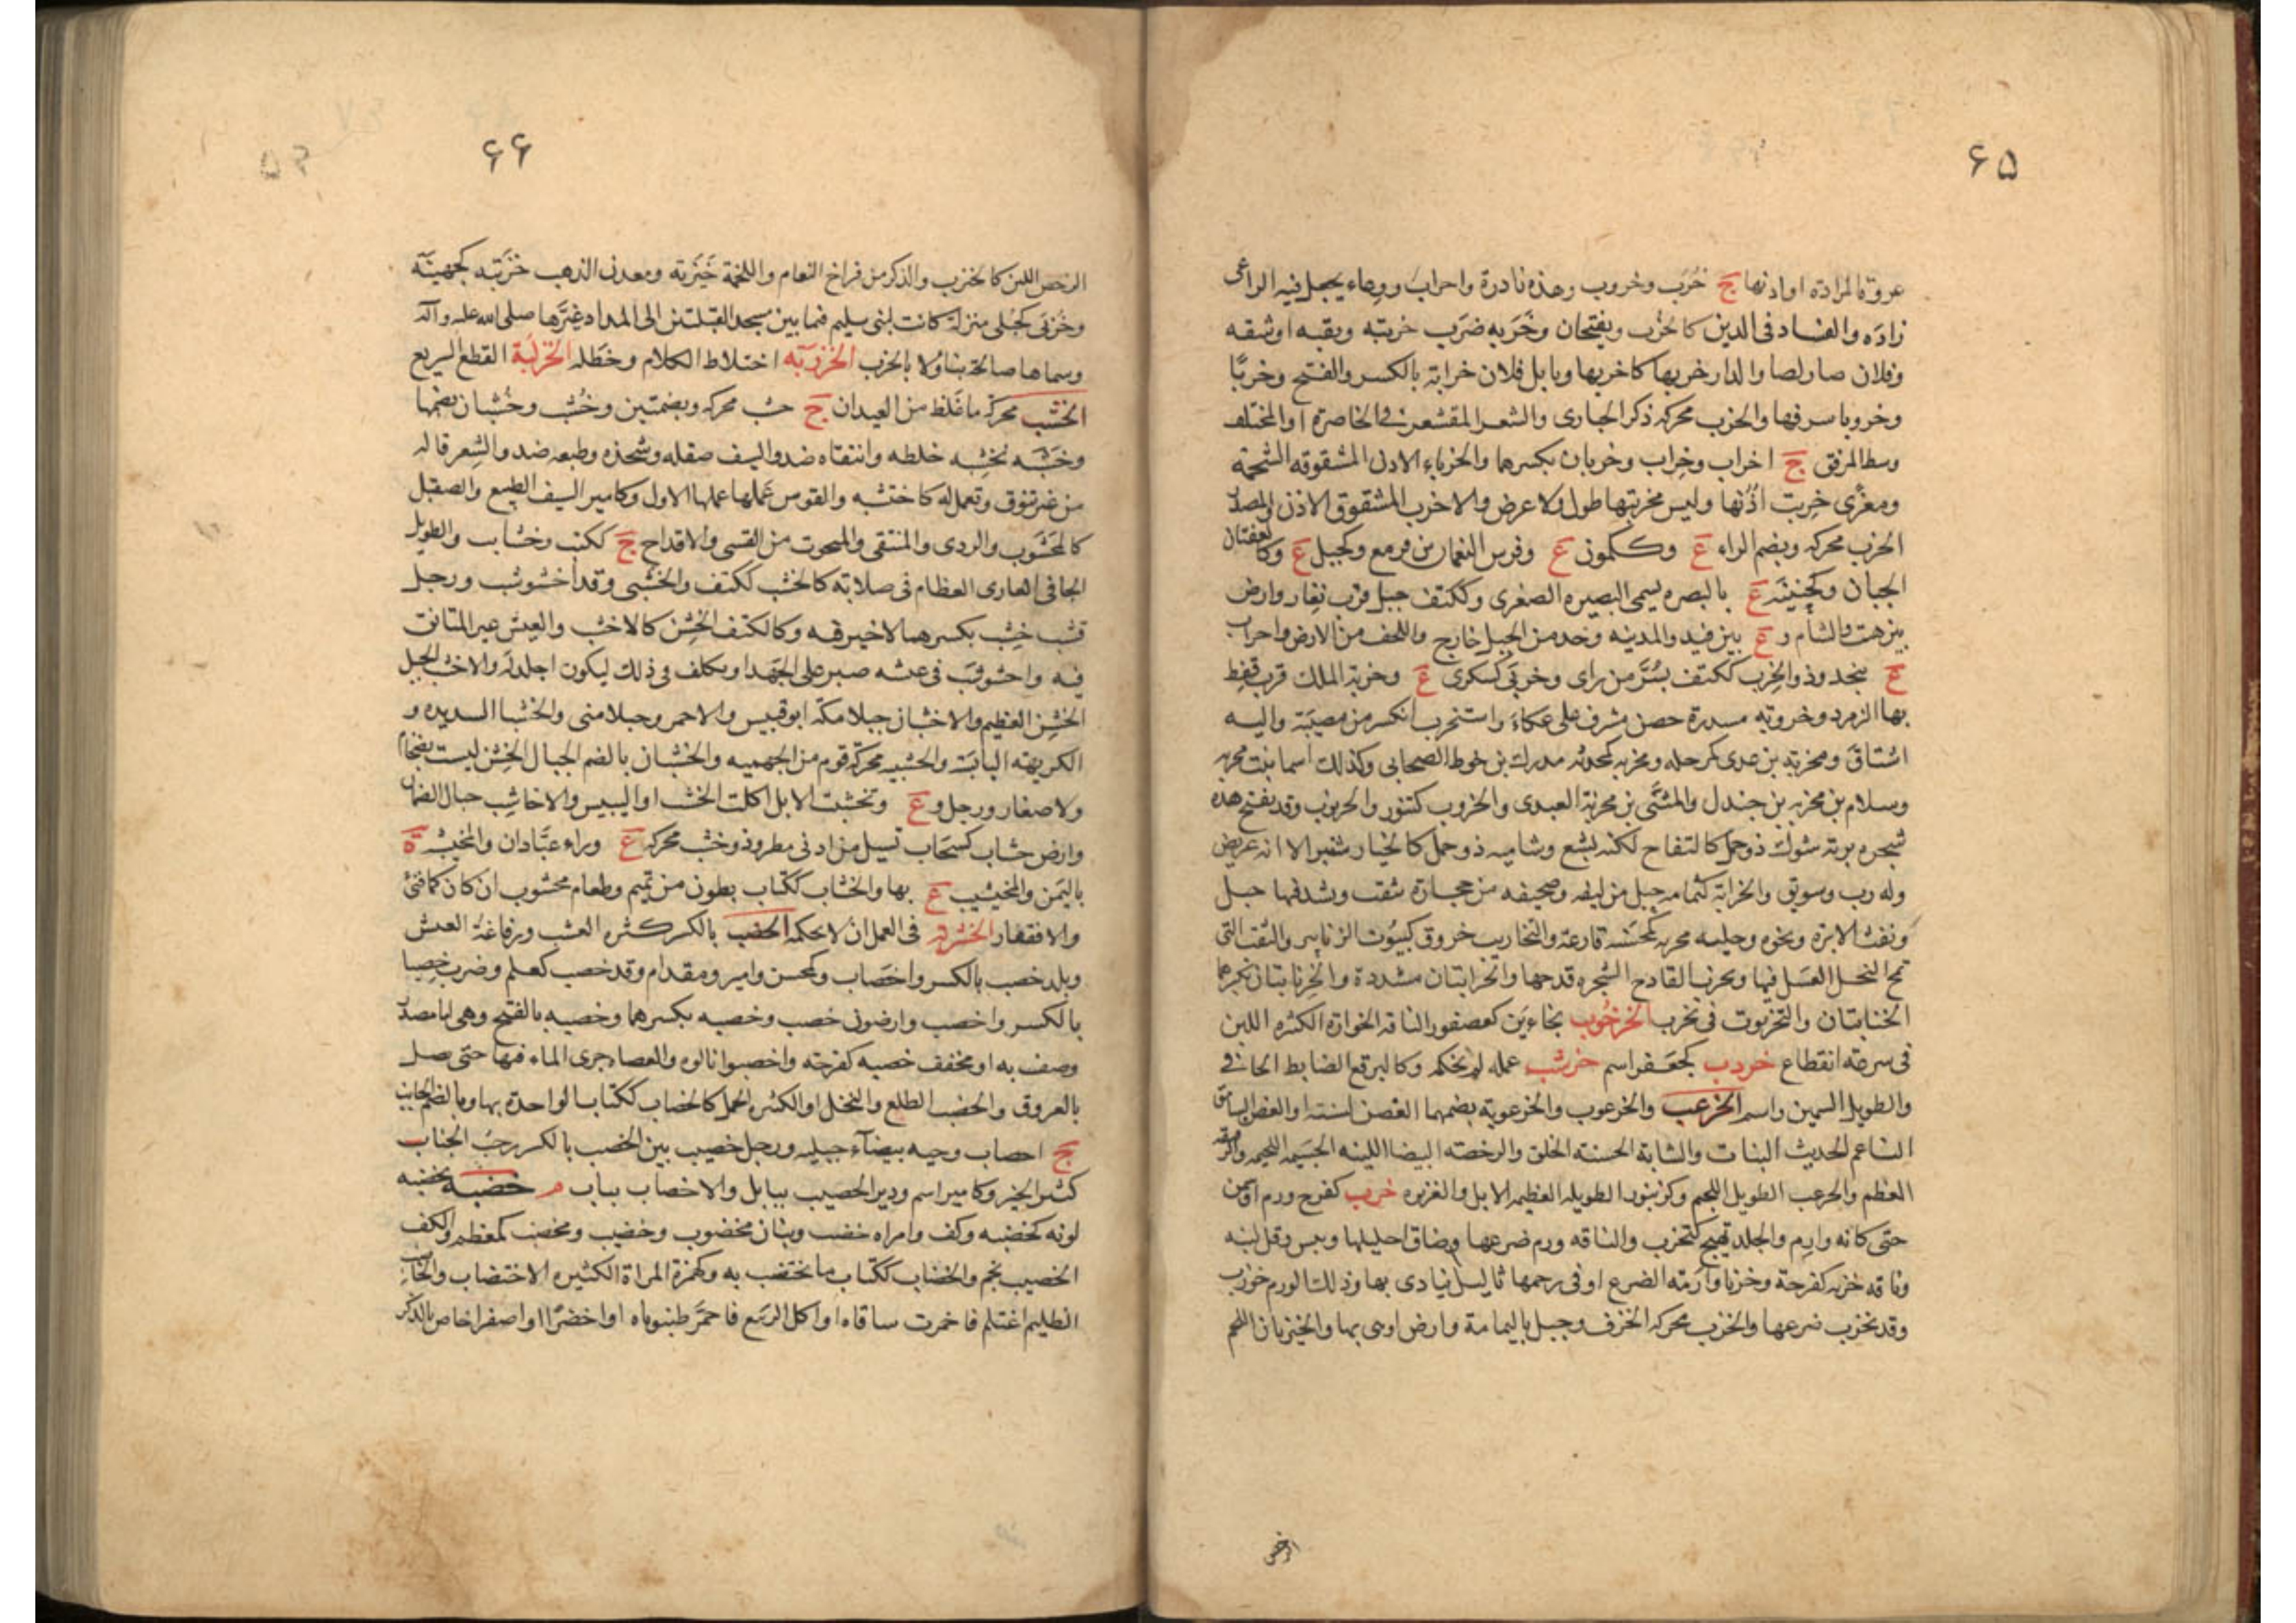 ۶۵
عروة المزادة او اذنها ج خُرَب وخروب وهذه نادرة واخراب ووعاء يجعل فيه الراعى
زاده والفساد فى الدين كالخُرْب ويفتحان وخَرَبه ضرَب خربته وبقبه اوشقه
وفلان صار لصا والدار خربها كاخربها وبابل فلان خرابة بالكسر والفتح وخربًا
وخروبا سرقها والخرب محركه ذكر الحبارى والشعر المقشعر فى الخاصرة او المختلف
وسط المرفق ج اخراب وخِراب وخربان بكسرهما والخرباء الاذن المشقوقه الشحمة
ومعزى خربت اذنها وليس مخربتها طول ولا عرض والاخرب المشقوق الاذن والمصدر
الخرب محركه وبضم الراء ع وكـكمون ع وفرس النعمان بن قريع وكجبل ع وكالعفتان
الجبان وكجهينة ع بالبصره يسمى البصيره الصغرى وككتف جبل قرب تعار وارض
بين هيت والشام و ع بين فيد والمدينه وحد من الجبل خارج واللجف من الارض واخراب
ع بنجد وذو الخرب ككتف بسُرَّ من راى وخربَى كسكرى ع وخربة الملك قرب قفط
بها الزمرد وخروبه مسدرة حصن مشرف على عكاء واستخرب انكسر من مصيبة واليه
اشتاق ومخربة بن عدى كمرحله ومخربه كمحدثه مدرك بن خوط الصحابى وكذلك اسما بنت مخربه
وسلام بن مخربه بن جندل والمثنَّى بن مخربة العبدى والخروب كتنور والخرنوب وقد يفتح هذه
شجره بريه شوك ذو حمل كالتفاح لكنه بشع وشاميه ذو حمل كالخيار شنبر الا انه عريض
وله رب وسويق والخرابة كثمامه حبل من ليف وصحيفه من حجارة تثقب ويشد فيها حبل
ونقب الابرة ونحوه وخليه مخربه كمحسنه فارغة والنخاريب خروق كبيوت الزنابير والثقب التى
تمج النحل العسل فيها ونخرب القادح الشجره قدحها والخرابتان مشددة والخرنابتان بكسرهما
الخنابتان والتخربوت فى نخرب الخرخُوب بخاءين كعصفور الناقه الخوارة الكثيره اللبن
فى سرعة انقطاع خردب كجعـفر اسم خرشب عمله لم يحكمه وكالبرقع الضابط الجافى
والطويل السمين واسم الخرعب والخرعوب والخرعوبة بضمهما الغصن لسنته او الغض السامق
الناعم الحديث النبات والشابة الحسنة الخلق والرخصة البيضا اللينه الجسيمه اللحيمه والرقيقه
العظم والخرعب الطويل اللحيم وكزنبور الطويله العظيمه الابل والغزيره خزب كفرح ورم او سمن
حتى كانه وارم والجلد تهيج كتخزب والناقه ورم ضرعها وضاق احليلها ويبس وقل لبنه
وناقه خزبه كفرحة وخزبا وارمته الضرع او فى رحمها ثاليل تتادى بها وذلك الورم خوزب
وقد تخزب ضرعها والخزب محركه الخزف وجبل باليمامة وارض اوهى بها والخيزبان اللحم
الرخص
۶۶
الرخص اللين كالخيزب والذكر من فراخ النعام واللحمة خَيزَبة ومعدن الذهب خزيبه كجهينة
وخُزبَى كحُبلى منزلة كانت لبنى سليم فيما بين مسجد القبلتين الى المداد غيَّرها صلى الله عليه وآله
وسماها صالحة تفاؤلا بالخزب الخزربة اختلاط الكلام وخطله الخزلبة القطع السريع
الخشب محركة ما غلظ من العيدان ج خشب محركه وبضمتين وخُشْب وخُشْبان بضمها
وخشَبه يخشِبه خلطه وانتقاه ضد والسيف صقله وشحذه وطبعه ضد والشِعر قاله
من غير تنوق وتعمل له كاختشبه والقوس عملها عملها الاول وكامير السيف الطبيع والصقيل
كالمخشوب والردى والمنتقى والمنحوت من القسى والاقداح ج ككتب وخشاب والطويل
الجافى العارى العظام فى صلابة كالخشب ككتف والخشبى وقد اخشوشب ورجل
قشب خشب بكسرهما لا خير فيه وكالكتف الخشِن كالاخشب والعيش غير المتانق
فيه واخشوشب فى عيشه صبر على الجَهد او تكلف فى ذلك ليكون اجلد له والاخشب الجبل
الخشِن العظيم والاخشبان جبلا مكة ابو قبيس والاحمر وجبلا منى والخشبا الشديده و
الكريهه اليابسة والخشبيه محركة قوم من الجهميه والخشبان بالضم الجبال الخشن ليست بضخام
ولا صغار ورجل و ع وتخشبت الابل اكلت الخشب او اليبيس والاخاشب جبال الصمان
وارض خشاب كسحاب تسيل من ادنى مطر وذو خشب محركه ع وراء عبَّادان والخيشبة ة
باليمن والمخيشيب ع بها والخشاب ككتاب بطون من تميم وطعام مخشوب ان كان كما فنئ
والا فقفار الخشربه فى العمل ان لا يحكمه الخصب بالكسر كثره العشب ورفاغة العيش
وبلد خصب بالكسر واخصاب وكمحسن وامير ومقدام وقد خصب كعلم وضرب خِصبا
بالكسر واخصب وارضون خصب وخصبه بكسرهما وخصبه بالفتح وهى اما مصدر
وصف به او مخفف خصبه كفرحة واخصبوا نالوه والعصاه جرى الماء فيها حتى يصل
بالعروق والخصب الطلع والنخل او الكثيره الحمل كالخصاب ككتاب الواحدة بها وبالضم الجانب
ج اخصاب وحيه بيضآء جبليه ورجل خصيب بين الخصب بالكسر رحب الجناب
كثير الخير وكامير اسم ودير الخصيب ببابل والاخصاب ثياب م خضبه يخضبه
لونه كخضبه وكف وامراه خضب وبنان مخضوب وخضيب ومخضب كمعظم والكف
الخضيب نجم والخضاب ككتاب ما يختضب به وكهمزة المراة الكثيره الاختضاب والخاضب
الظليم اغتلم فاحمرت ساقاه او اكل الربيع فاحمرَّ ظنبوباه او اخضرَّا او اصفرا خاص بالذكر